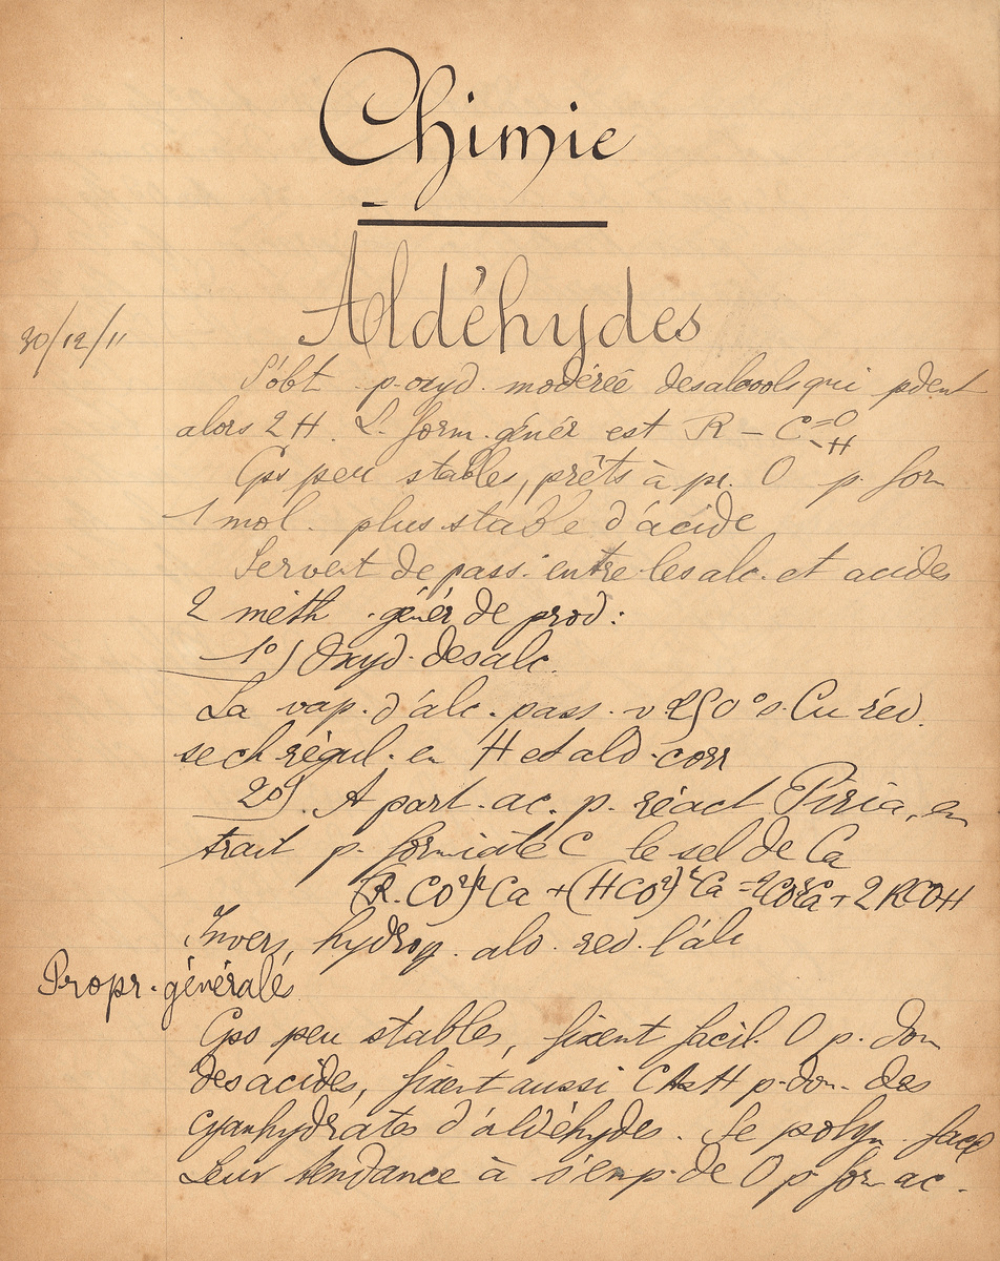 Chimie
Aldéhydes
30/12/11
S'obt. p. oxyd. modérée des alcools qui pdent
alors 2 H. L. form. génér est R – C =O -H
Cps peu stables, prêts à pr. O p. for
1 mol. plus stable d'acide
Servent de pass. entre les alc. et acides
2 méth. génér de prod :
1°) Oxyd. des alc.
La vap. d'alc. pass. v 250° s. Cu réd.
se ch régul. en H et ald. corr
2°). A part. ac. p. réact Piria, en
trait p. formiate C le sel de Ca
(R.CO²)²Ca + (HCO²)²Ca = 2CO³Ca + 2RCOH
Invers, hydrog. ald. red. l'alc
Propr. générales
Cps peu stables, fixent facil. O p. don
des acides, fixent aussi CAzH p. don. des
cyanhydrates d'aldéhydes. Se polym. facil
Leur tendance à s'emp. de O p. for ac.